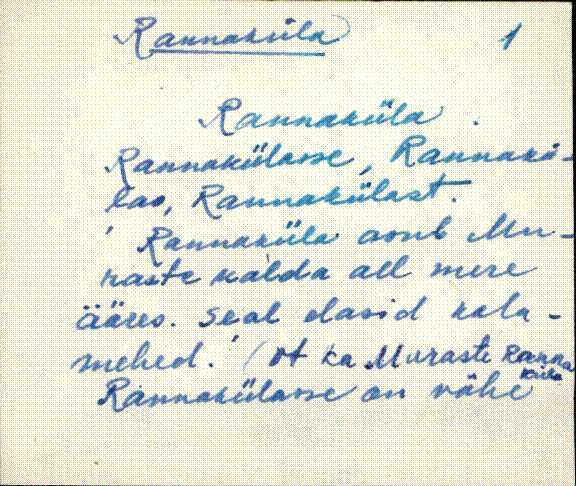 Rannaküla 1
Rannaküla.
Rannakülasse, Rannakü-
las, Rannakülast.
Rannaküla asub Mu-
raste kalda all mere
ääres. Seal elasid kala-
mehed. (vt ka Muraste Ranna
küla
Rannakülasse on vähe